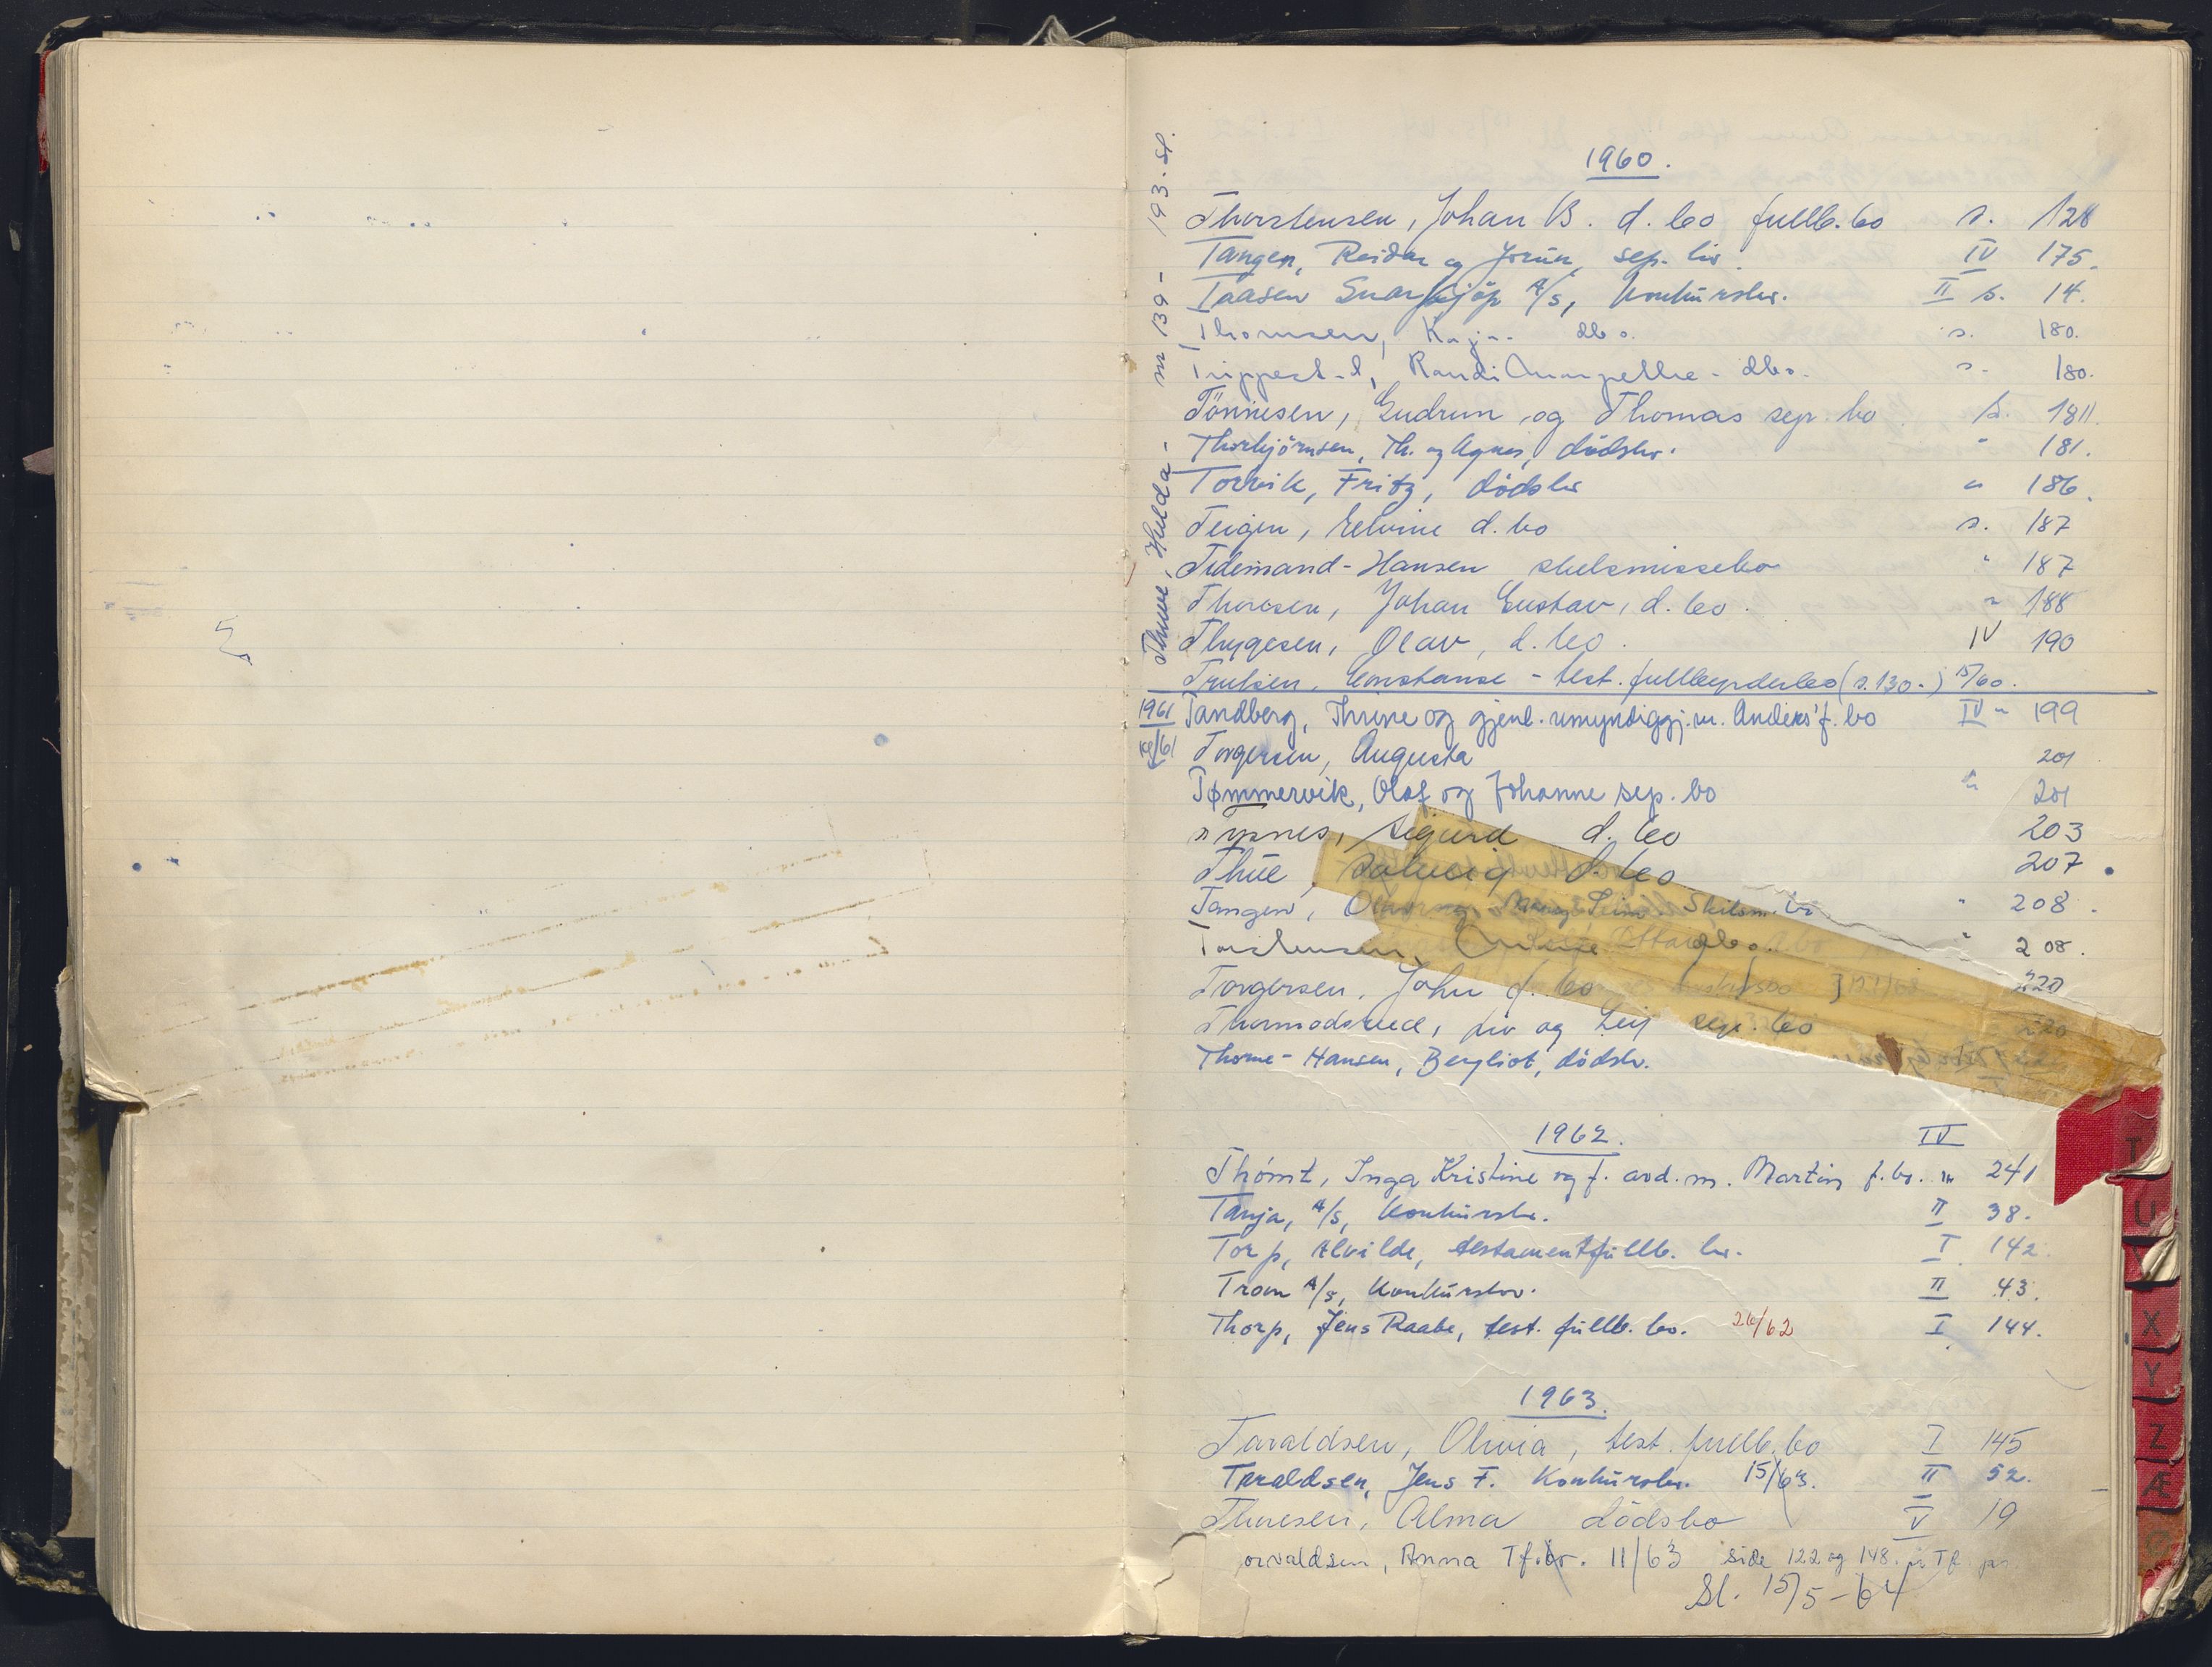 1960.
Thorstensen, Johan B. d. bo fullb. bo s. 128
Tangen, Reidar og Jorun, sep. bo IV 175.
Taasen Snarkjöp A/S, konkursbo. II s. 14.
Thomsen, Kaja dbo. s. 180.
Randi dbo. s. 180.
Tönnesen, Gudrun og Thomas sep. bo s. 181
Thorbjörnsen, Th. og Agnes, dödsbo. " 181.
Torvik, Fritz, dödsbo " 186.
Teigen, d. bo s. 187
Tidemand-Hansen skilsmissebo " 187
Thoresen, Johan Gustav, d. bo. " 188
Thygesen, Olav, d. bo. IV 190
Trulsen, Constanse - test. fullbyrderbo (s. 130-) 15/60.
1961 Tandberg, Thrine og gjenl. umyndiggj. m. Anders' f. bo IV " 199
Torgersen, Augusta 201
Tømmervik, Olaf og Johanne sep. bo " 201
Sigurd d. bo 203
Thue, Solveig d. bo 207.
Tangen, Skilsm. bo " 208.
Torstensen, " 208.
Torgersen, John d. bo 220
Thormodsrud, Liv og Leif sep. bo 220
Thorne-Hansen, Bergliot, dödsbo.
Thuve, Hulda - nr 139 - 193. sl.
1962. IV
Inga Kristine og f. avd. m. Martin f. bo. " 241
Tanja, A/S, konkursbo. II 38.
Torp, Alvilde, testamentfullb. bo. I 142.
Trom A/S, konkursbo. II 43.
Thorp, Jens Raabe, test. fullb. bo. 26/62 I 144.
1963.
Taraldsen, Olivia, test. fullb. bo I 145
Taraldsen, Jens F. Konkursbo. 15/63. II 52.
Thoresen, Alma dödsbo V 19
orvaldsen, Anna Tf.bo. 11/63 side 122 og 148.
Sl. 15/5-64
T
U
X
Y
Z
Æ